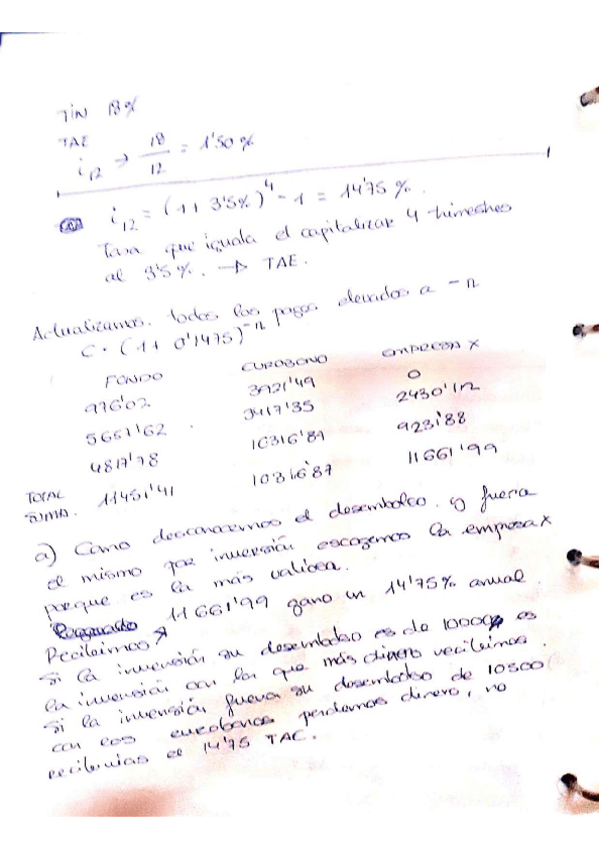 TIN 18%
TAE
i12 → 18/12 = 1'50 %
i12 = (1 + 3'5%)^4 - 1 = 14'75 %.
Tasa que iguala el capitalizar 4 trimestres
al 3'5%. → TAE.
Actualizamos. todos los pagos elevados a -n
C · (1 + 0'1475)^-n
FONDO EUROBONO EMPRESA X
976'02 3921'49 0
5657'62 3417'35 2430'12
4817'78 923'88
TOTAL SUMA. 11451'41 11661'99
a) Como desconocemos el desembolso. y fuera
el mismo por inversión escogemos la empresa X
porque es la más valiosa.
11661'99 gano un 14'75% anual.
Recibimos
Si la inversión su desembolso es de 10000 es
la inversión con la que más dinero recibimos.
Si la inversión fuera su desembolso de 10500
con los eurobonos perdemos dinero, no
recibirías el 14'75 TAE.